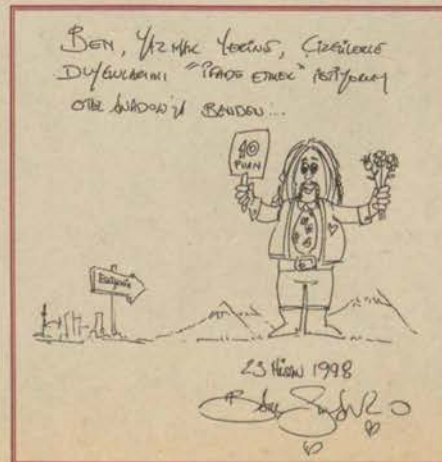 BEN, YAZMAK YERİNE, ÇİZGİLERLE
DUYGULARIMI "İFADE ETMEK" İSTİYORUM
OTEL ANADON'A BENDEN...
10
PUAN
23 Nisan 1998